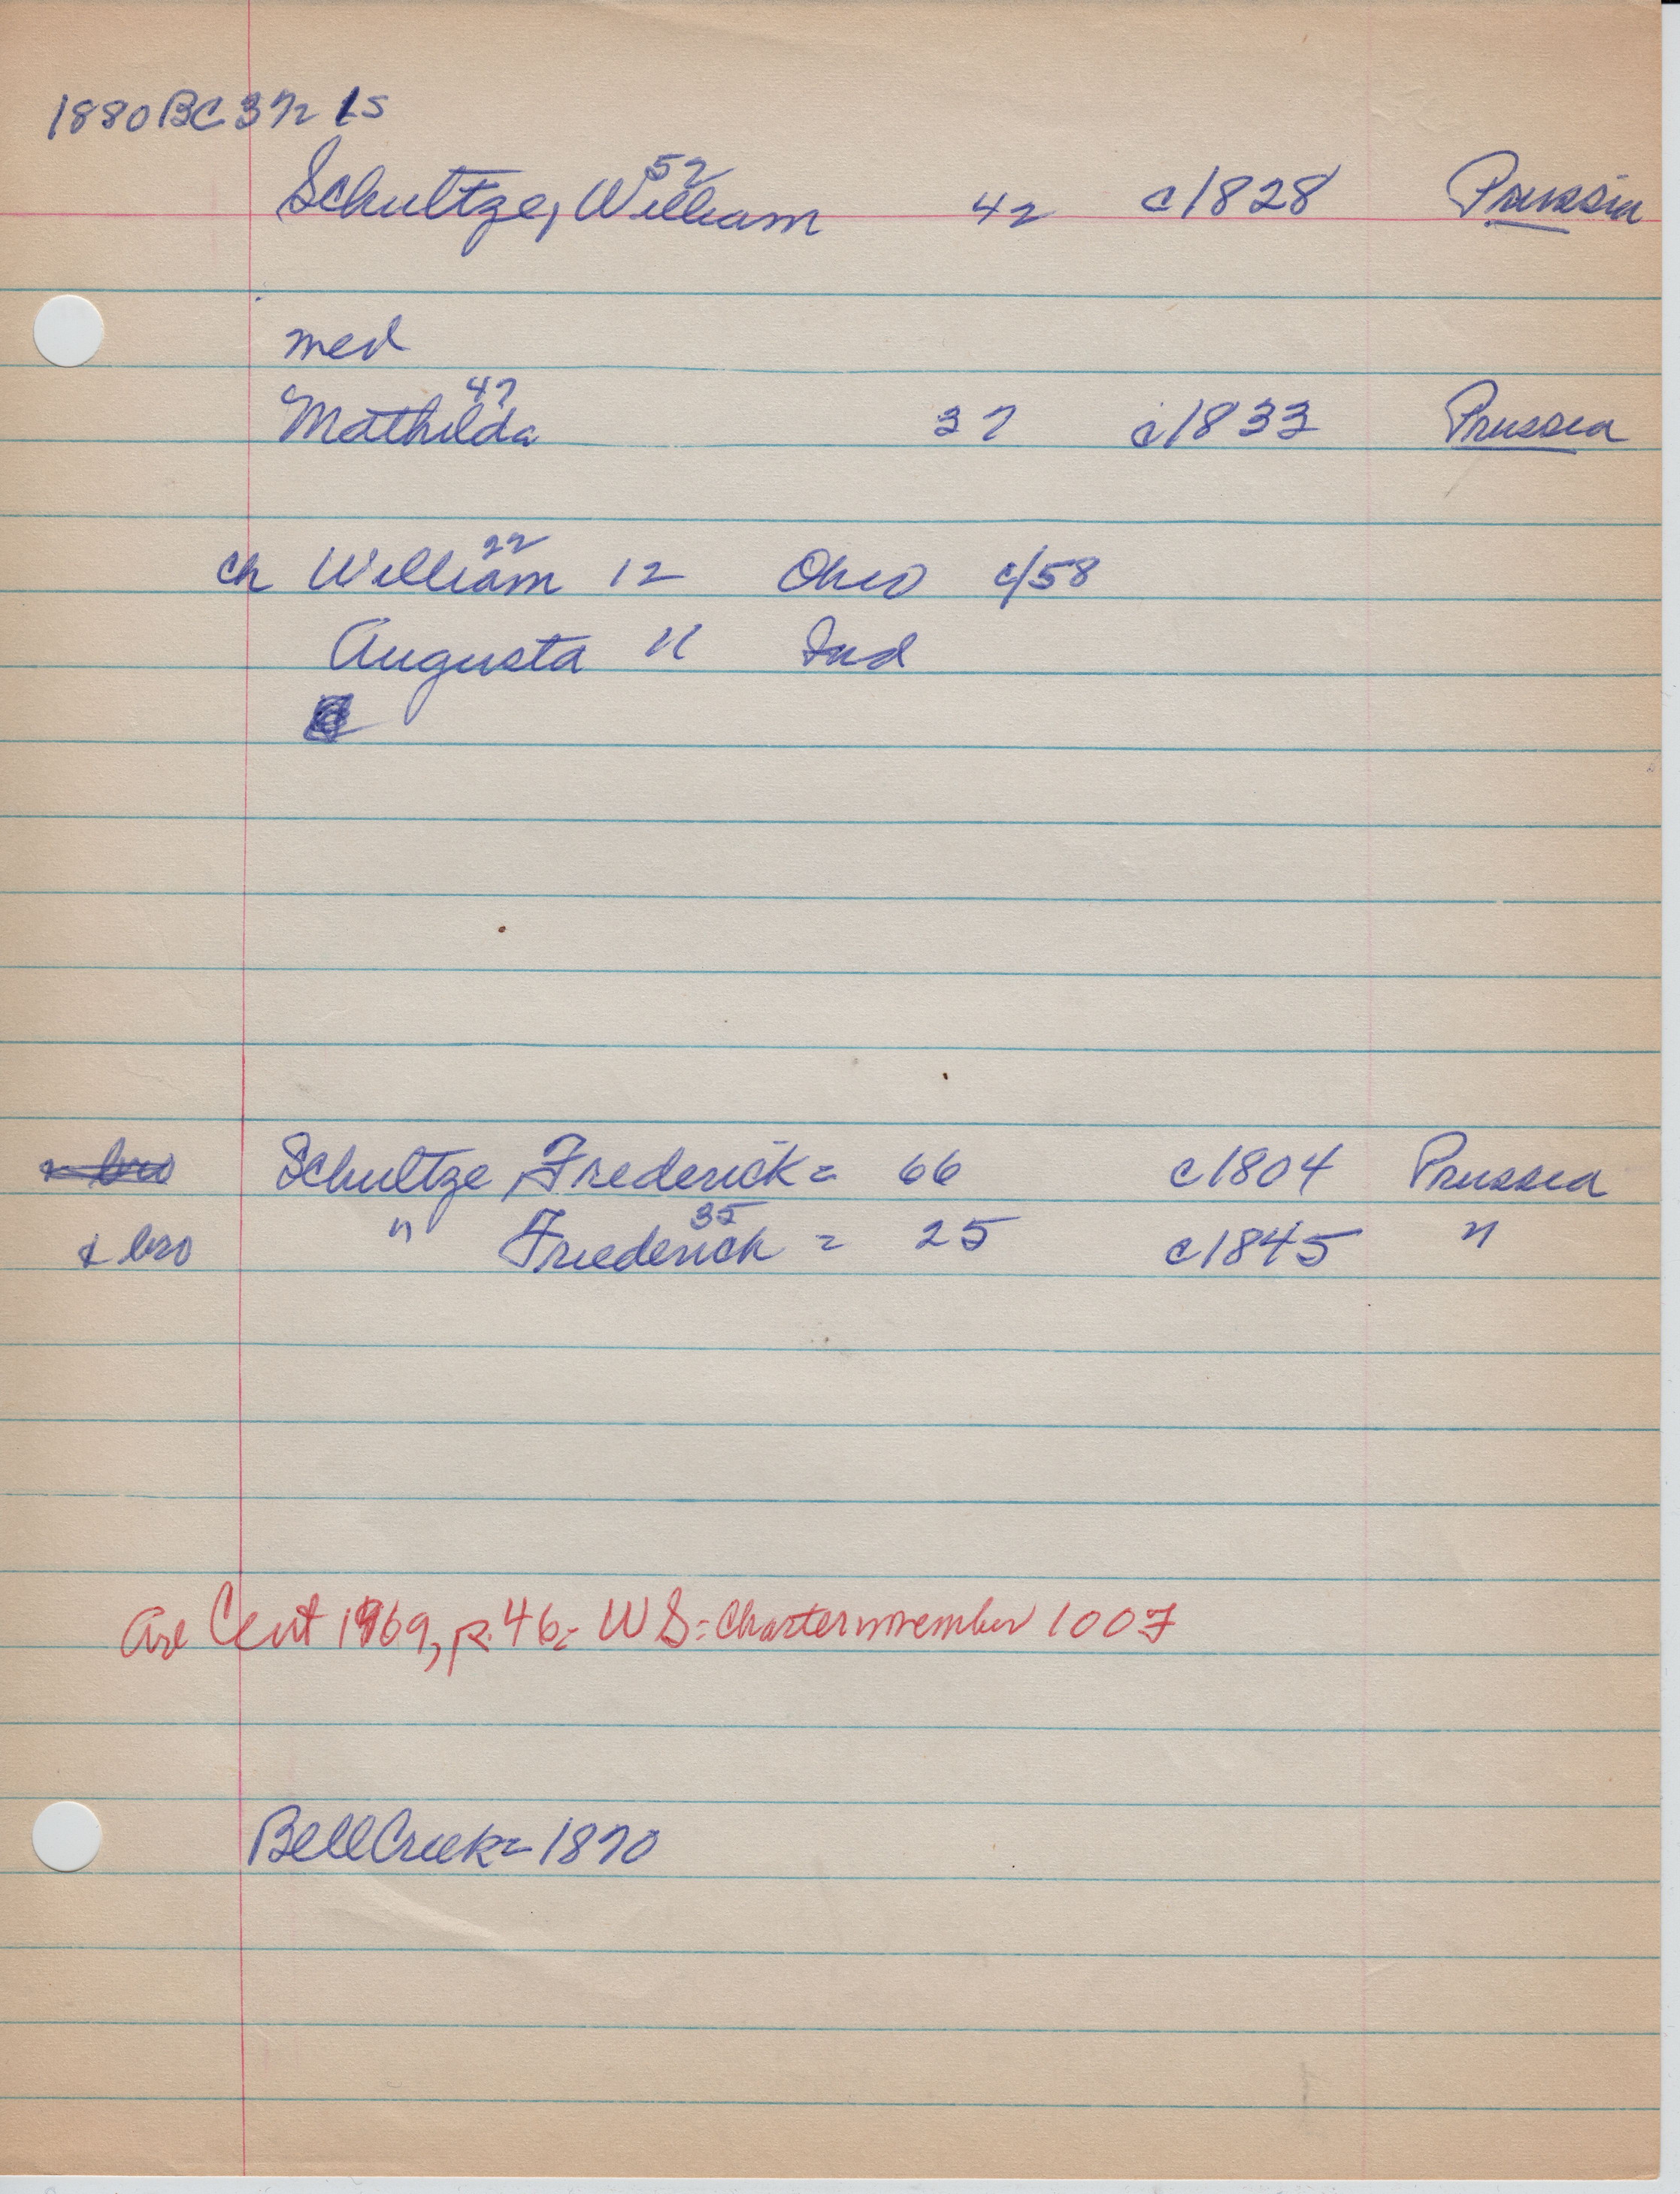 1880 BC 372 15
52
Schultze, William 42 c1828 Prussia
med
47
Mathilda 37 c1833 Prussia
22
ch William 12 Ohio c/58
Augusta 11 Ind
Schultze, Frederick = 66 c1804 Prussia
35
& bro " Friederick = 25 c1845 "
Cent 1969, p. 46 = WS = Charter member 100 F
Bell Creek = 1870